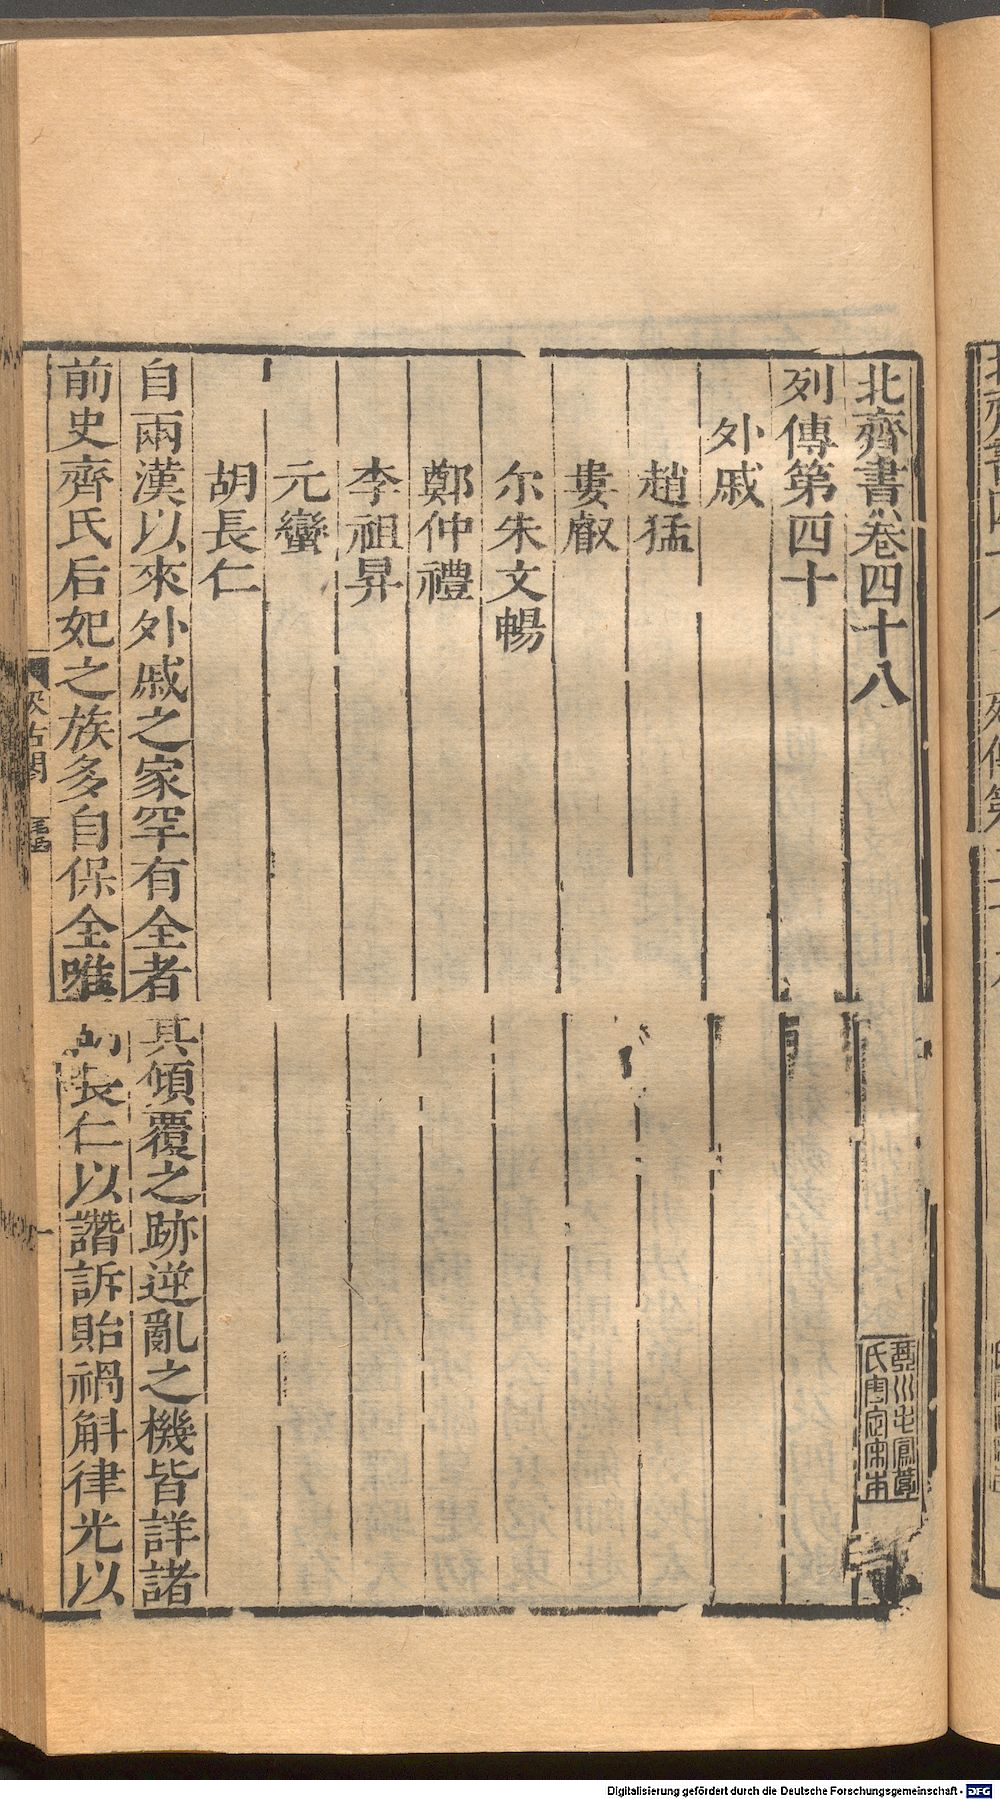 北齊書卷四十八
列傳第四十
外戚
趙猛
婁叡
尒朱文暢
鄭仲禮
李祖昇
元蠻
胡長仁
自兩漢以來外戚之家罕有全者其傾覆之跡逆亂之機皆詳諸
前史齊氏后妃之族多自保全唯胡長仁以譖訴貽禍斛律光以
汲古閣
Digitalisierung gefördert durch die Deutsche Forschungsgemeinschaft - DFG